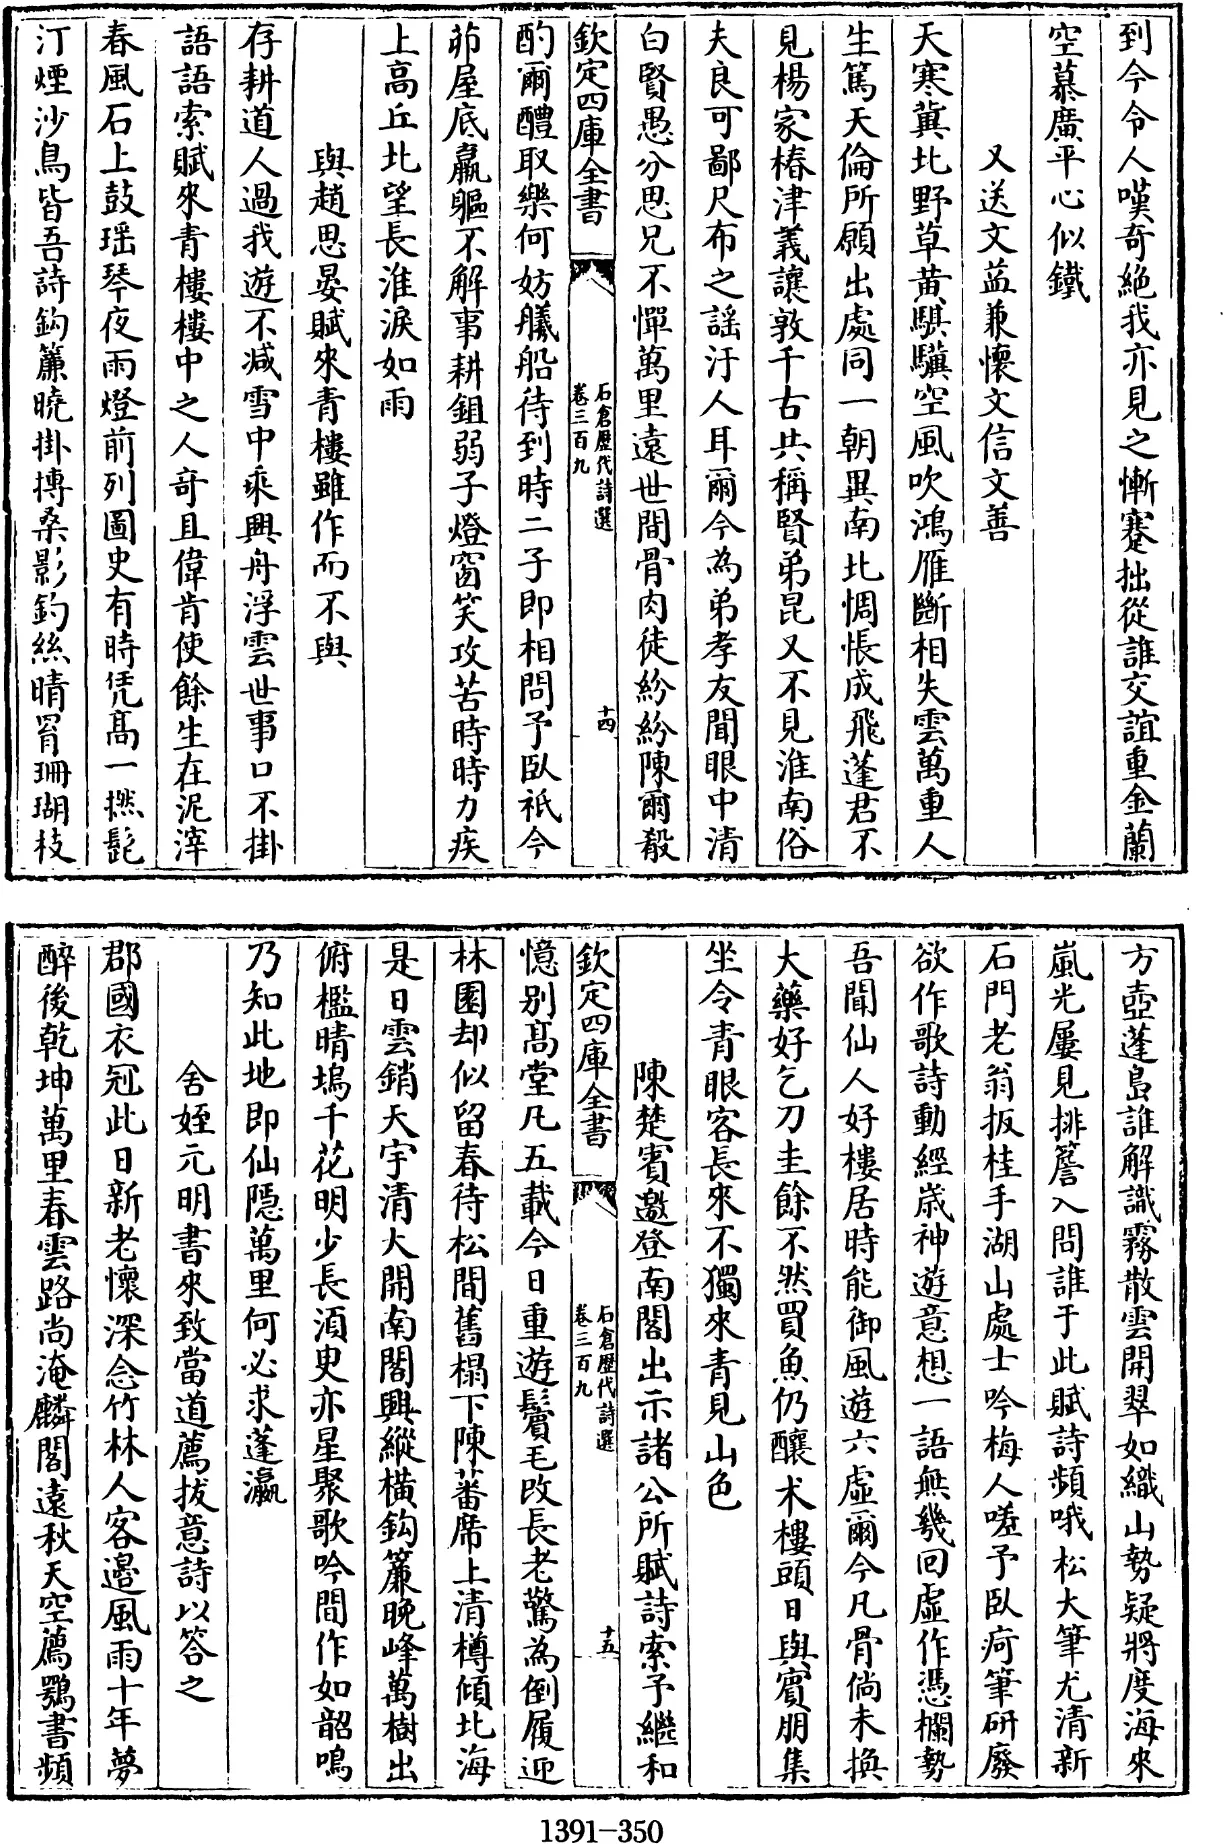 到今令人嘆奇絶我亦見之慚蹇拙從誰交誼重金蘭
空慕廣平心似鐵
又送文益兼懷文信文善
天寒冀北野草黄騏驥空風吹鴻雁斷相失雲萬重人
生篤天倫所願出處同一朝異南北惆悵成飛蓬君不
見楊家椿津義讓敦千古共稱賢弟昆又不見淮南俗
夫良可鄙尺布之謡汙人耳爾今為弟孝友聞眼中清
白賢愚分思兄不憚萬里遠世間骨肉徒紛紛陳爾殽
欽定四庫全書
石倉歴代詩選
卷三百九
十四
酌爾醴取樂何妨艤船待到時二子即相問予臥衹今
茆屋底羸軀不解事耕鉏弱子燈窗笑攻苦時時力疾
上高丘北望長淮淚如雨
與趙思晏賦來青樓雖作而不與
存耕道人過我遊不減雪中乘興舟浮雲世事口不掛
語語索賦來青樓樓中之人奇且偉肯使餘生在泥滓
春風石上鼓瑶琴夜雨燈前列圖史有時凭髙一撚髭
汀煙沙鳥皆吾詩鈎簾曉掛搏桑影釣絲晴罥珊瑚枝
方壺蓬島誰解識霧散雲開翠如織山勢疑將度海來
嵐光屢見排簷入問誰于此賦詩頻哦松大筆尤清新
石門老翁扳桂手湖山處士吟梅人嗟予臥疴筆研廢
欲作歌詩動經嵗神遊意想一語無幾回虛作憑欄勢
吾聞仙人好樓居時能御風遊六虛爾今凡骨倘未換
大藥好乞刀圭餘不然買魚仍釀术樓頭日與賓朋集
坐令青眼客長來不獨來青見山色
陳楚賓邀登南閣出示諸公所賦詩索予繼和
欽定四庫全書
石倉歴代詩選
卷三百九
十五
憶别髙堂凡五載今日重遊鬢毛改長老驚為倒履迎
林園却似留春待松間舊榻下陳蕃席上清樽傾北海
是日雲銷天宇清大開南閣興縱横鈎簾晚峰萬樹出
俯檻晴塢千花明少長湏臾亦星聚歌吟間作如韶鳴
乃知此地即仙隠萬里何必求蓬瀛
舍姪元明書來致當道薦拔意詩以答之
郡國衣冠此日新老懷深念竹林人客邉風雨十年夢
醉後乾坤萬里春雲路尚淹麟閣遠秋天空薦鶚書頻
1391-350